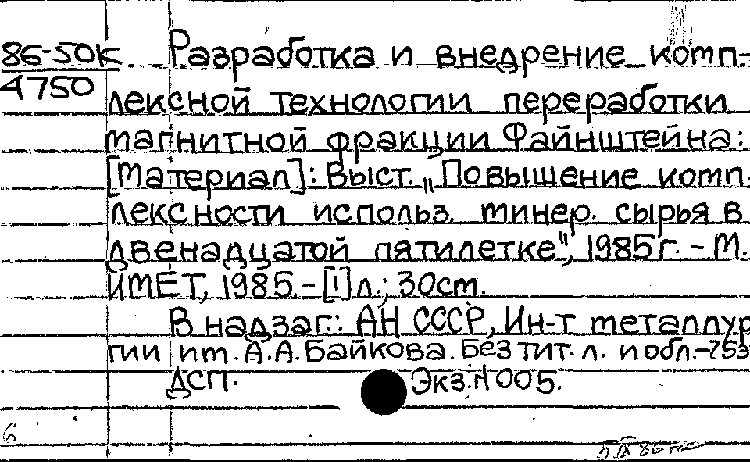 86-50к Разработка и внедрение комп-
4750
лексной технологии переработки
магнитной фракции Файнштейна:
[Материал]: Выст. „Повышение комп-
лексности использ. минер. сырья в
двенадцатой пятилетке", 1985 г. - М.
ИМЕТ, 1985. - [1] л.; 30 см.
В надзаг.: АН СССР, Ин-т металлур
гии им. А.А. Байкова. Без тит. л. и обл. - 753
ДСП. Экз. N 005.
6